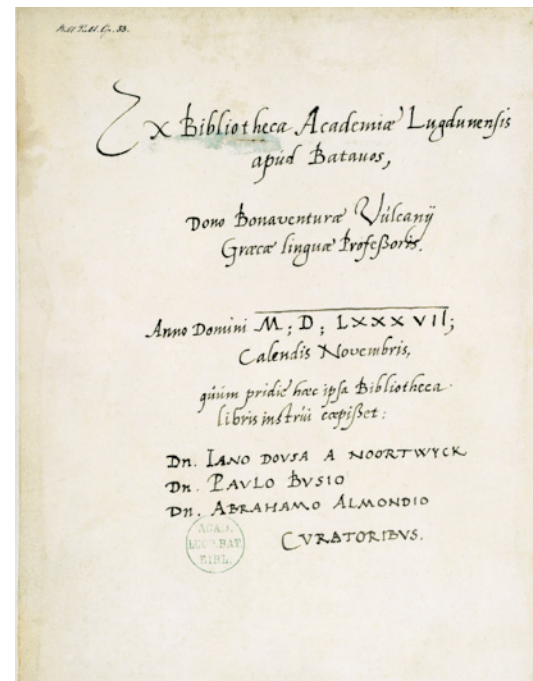 Bibl. Publ. Gr. 33.
Ex Bibliotheca Academiæ Lugdunensis
apúd Batauos,
Dono Bonaventuræ Vúlcanÿ
Græcæ linguæ Profeßoris.
Anno Domini M; D; LXXXVII;
Calendis Novembris,
qúúm pridiè hæc ipsa Bibliotheca
libris instrúi cœpißet:
Dn. IANO DOVSA A NOORTWYCK
Dn. PAVLO BVSIO
Dn. ABRAHAMO ALMONDIO
CVRATORIBVS.
ACAD.
LUGD.BAT.
BIBL.